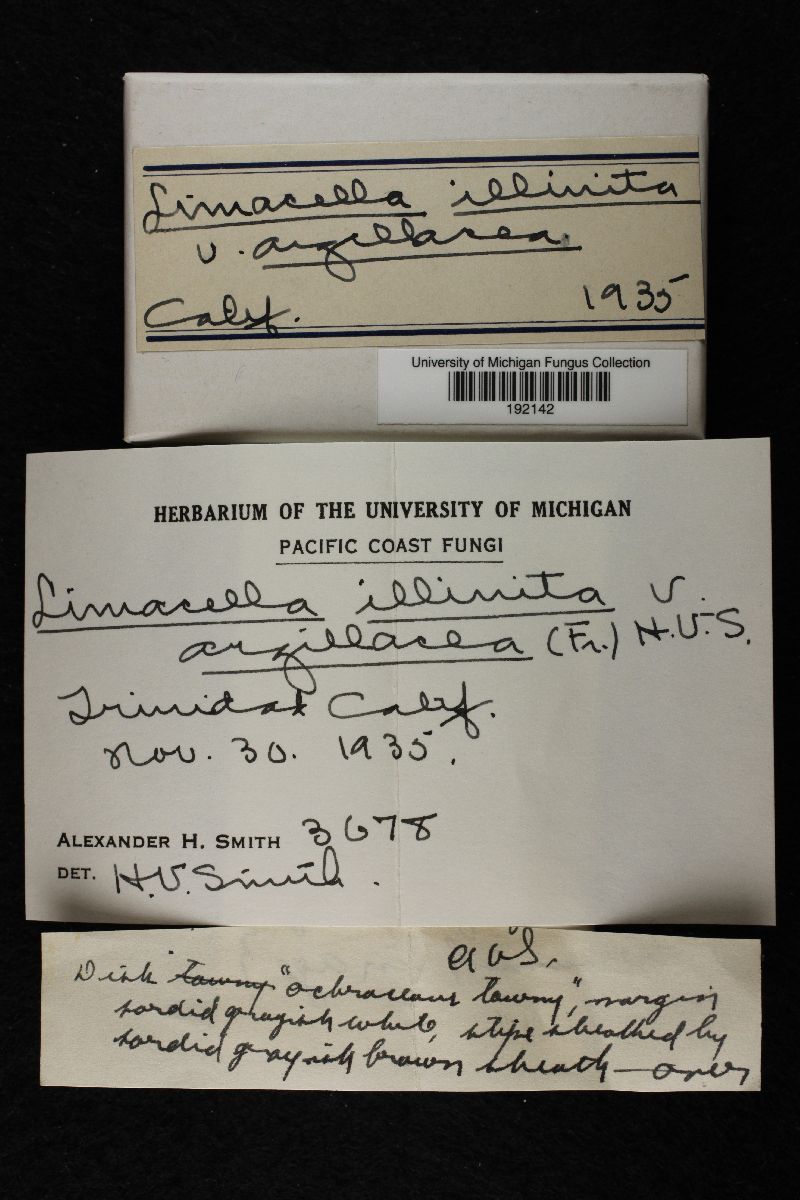 Limacella illinita
v. argillacea
Calif. 1935
University of Michigan Fungus Collection
192142
HERBARIUM OF THE UNIVERSITY OF MICHIGAN
PACIFIC COAST FUNGI
Limacella illinita v.
argillacea (Fr.) H.V.S.
Trinidad Calif.
Nov. 30. 1935.
ALEXANDER H. SMITH 3678
DET. H.V. Smith.
Disk tawny "ochraceous tawny", margin
sordid grayish white, stipe sheathed by
sordid grayish brown sheath —